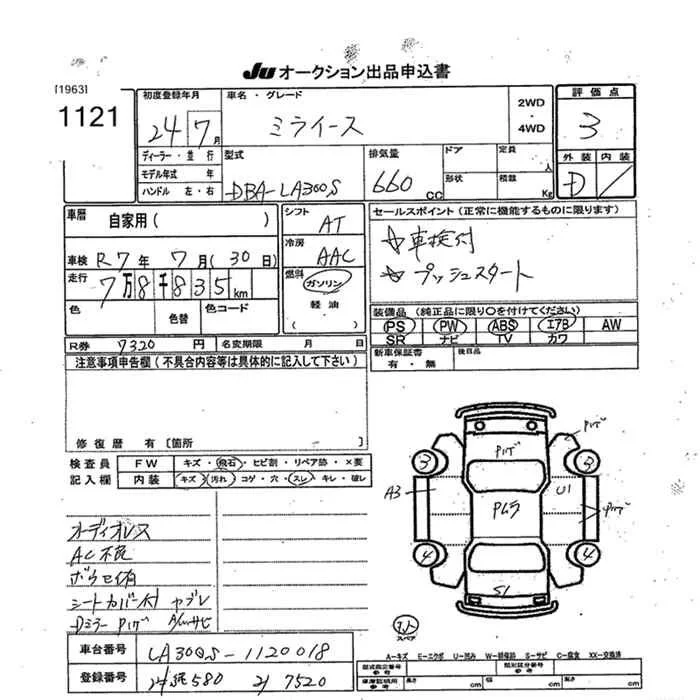 JU オークション出品申込書
[1963]
1121
初度登録年月
24 7月
車名・グレード
ミライース
2WD
・
4WD
評価点
3
外装 内装
D /
ディーラー・並行
モデル年式 年
ハンドル 左・右
型式
DBA-LA300S
排気量
660 CC
ドア
形状
定員 人
積載 Kg
車歴 自家用( )
車検 R7年 7月(30日)
走行 7万8千835km
色 色替 色コード
シフト AT
冷房 AAC
燃料 ガソリン
軽油
( )
セールスポイント(正常に機能するものに限ります)
☆車検付
☆プッシュスタート
装備品(純正品に限り○を付けてください)
PS PW ABS エアB AW
SR ナビ TV カワ
新車保証書
有・無
後日品
R券 7320円 名変期限 月 日
注意事項申告欄(不具合内容等は具体的に記入して下さい)
修復歴 有[箇所 ]
検査員
記入欄
FW キズ・飛石・ヒビ割・リペア跡・×要
内装 キズ・汚れ・コゲ・穴・スレ・キレ・破レ
オーディオレス
AC不良
シートカバー付 ヤブレ
Dミラー
P小ブ
P小ブ
3
3
A3
Pムラ
U1
P小ブ
4
4
S1
スペア
A-キズ E-エクボ U-凹み W-補修跡 S-サビ C-腐食 XX-交換済
車台番号 LA300S-1120018
登録番号 580 7520
型式指定番号
類別区分番号
車庫証明用
参考
長さ cm 幅 cm 高さ cm